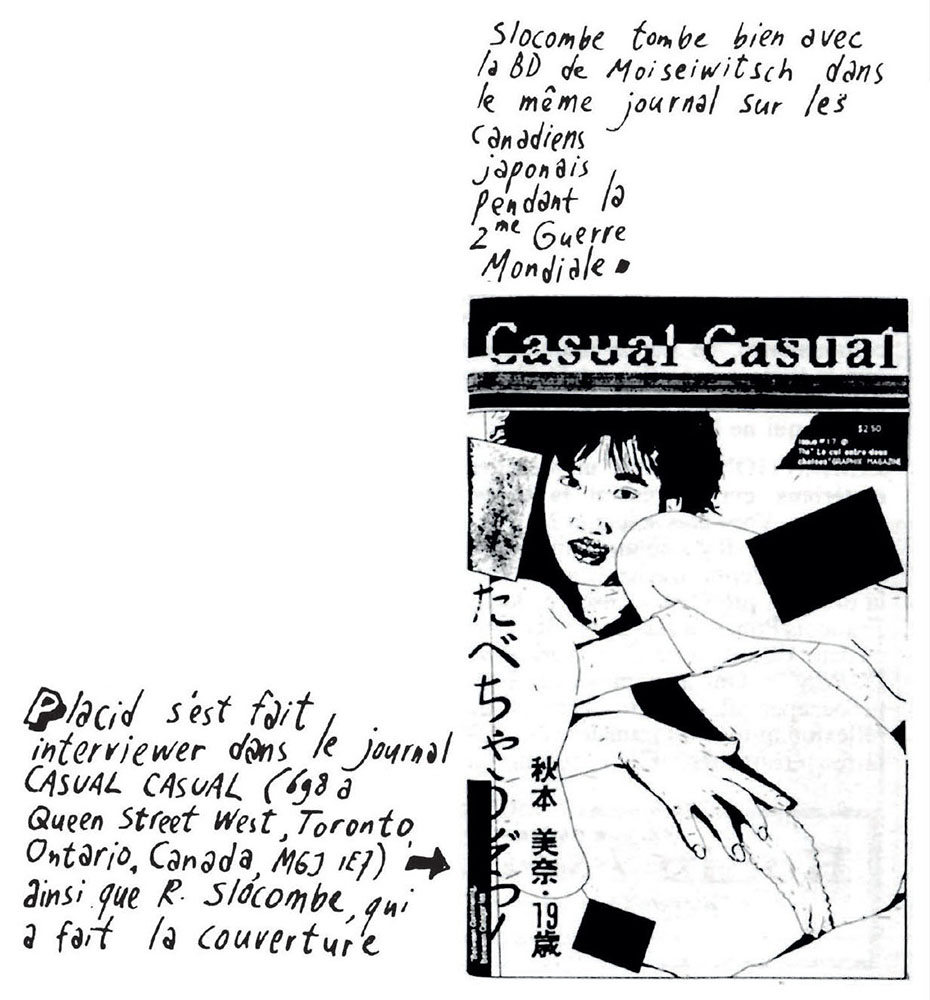 Slocombe tombe bien avec
la BD de Moiseiwitsch dans
le même journal sur les
Canadiens
japonais
pendant la
2me Guerre
Mondiale.
Casual Casual
$2.50
Issue #17 @
The" Le cul entre deux
chaises" GRAPHIX MAGAZINE
たべちゃうぞっ!
秋本 美奈・19歳
Placid s'est fait
interviewer dans le journal
CASUAL CASUAL (698 a
Queen Street West, Toronto,
Ontario, Canada, M6J 1E7) →
ainsi que R. Slocombe, qui
a fait la couverture